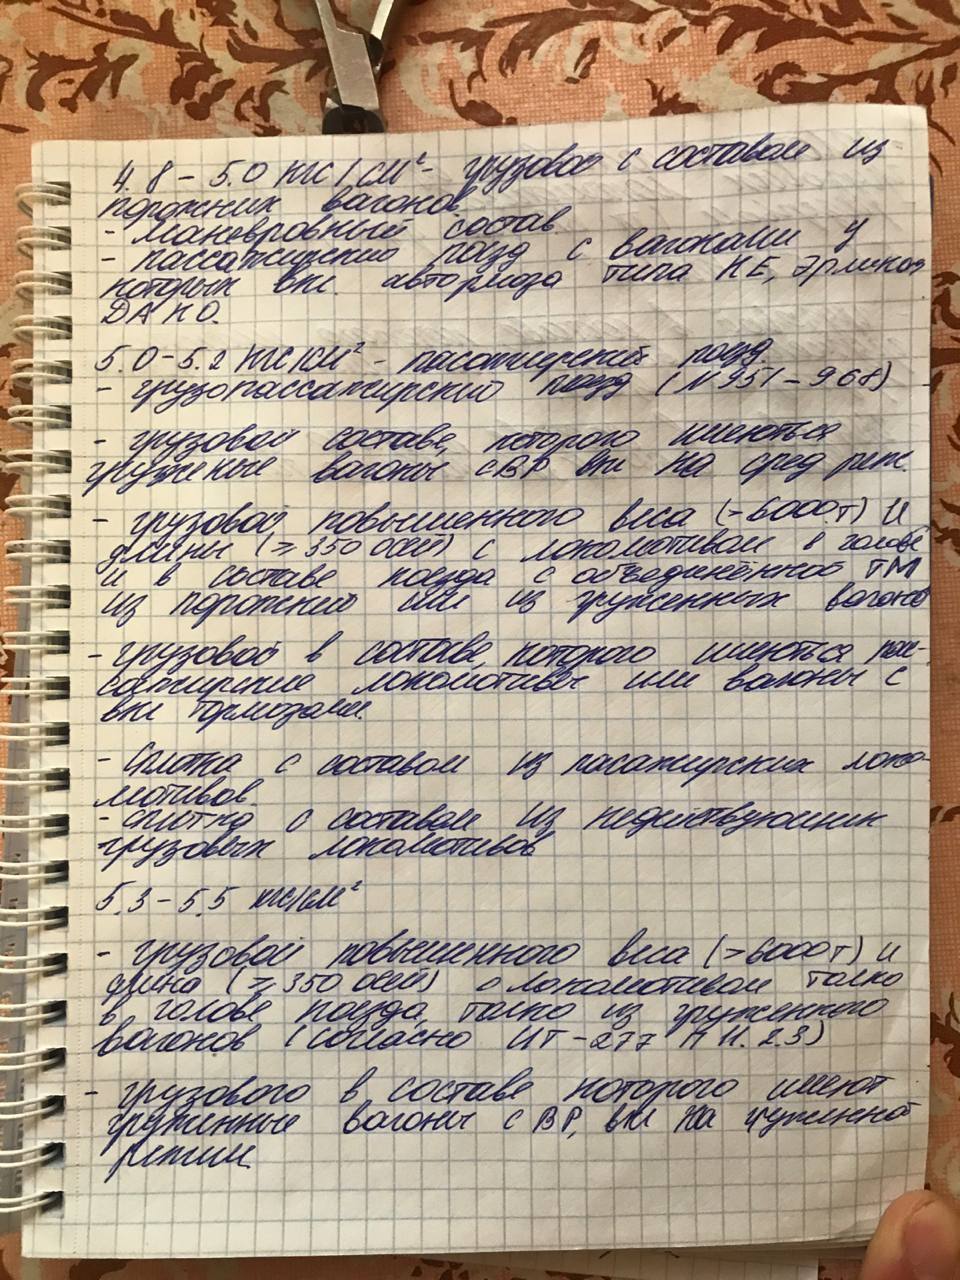 4.8 – 5.0 кгс/см² - грузовой с составом из
порожних вагонов
- маневровый состав
- пассажирский поезд с вагонами у
которых вкл. автормоза типа КЕ, Эрликон
ДАКО.
5.0-5.2 кгс/см² - пасажирский поезд
- грузопассажирский поезд (N 951 – 968)
- грузовой составе, которого имеються
груженые вагоны с ВР вкл на сред реж.
- грузовой повышенного веса (>6000т) и
длины (≥ 350 осей) с локомотивом в голове
и в составе поезда с объединённой ТМ
из порожний или из груженных вагонов
- грузовой в составе, которого имеються пас-
сажирские локомотивы или вагоны с
вкл тормозами.
- Сплотка с составом из пасажирских локо-
мотивов.
- сплотка с составом из недействующих
грузовых локомотивов
5.3 – 5.5 кгс/см²
- грузовой повышенного веса (>6000т) и
длина (≥ 350 осей) с локомотивом толко
в голове поезда, толко из груженного
вагонов (согласно ЦТ-277 п 11.2.3)
- грузового в составе которого имеют
груженные вагоны с ВР, вкл на груженной
режим.